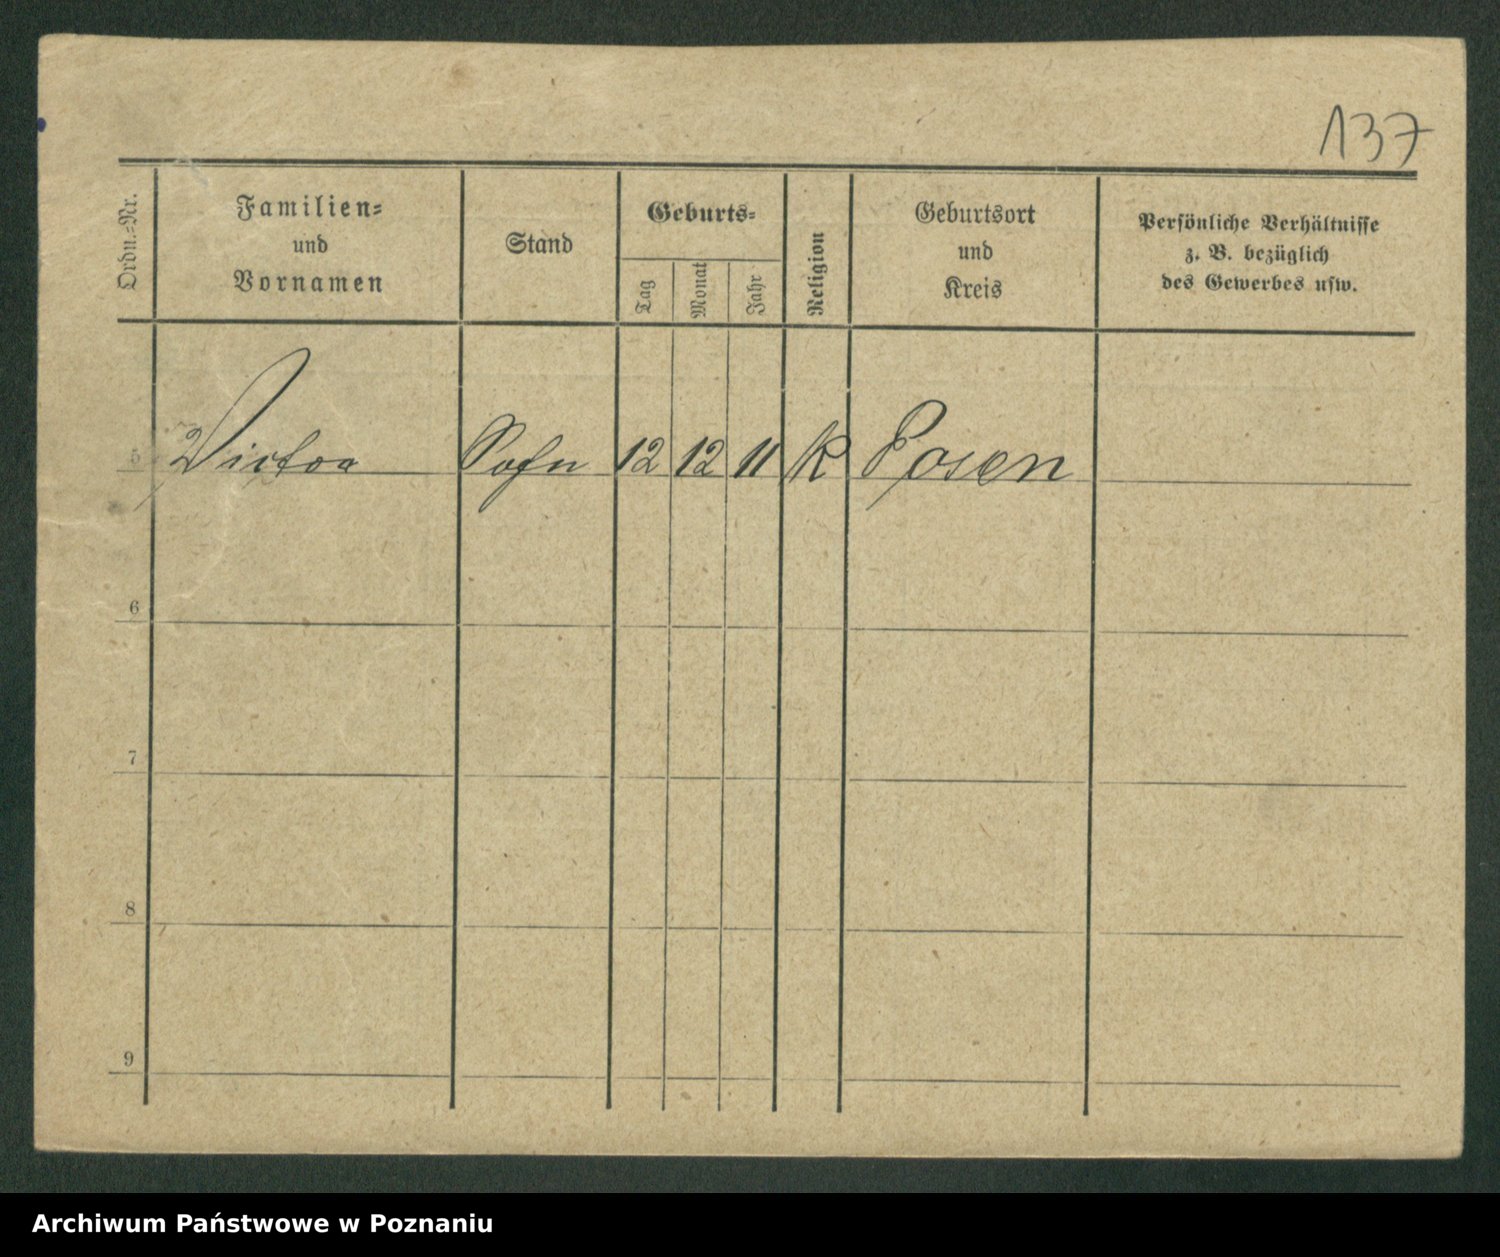 137
Ordn.-Nr.
Familien-
und
Vornamen
Stand
Geburts-
Tag
Monat
Jahr
Religion
Geburtsort
und
Kreis
Persönliche Verhältnisse
z. B. bezüglich
des Gewerbes usw.
5 Victor Sohn 12 12 11 K Posen
6
7
8
9
Archiwum Państwowe w Poznaniu